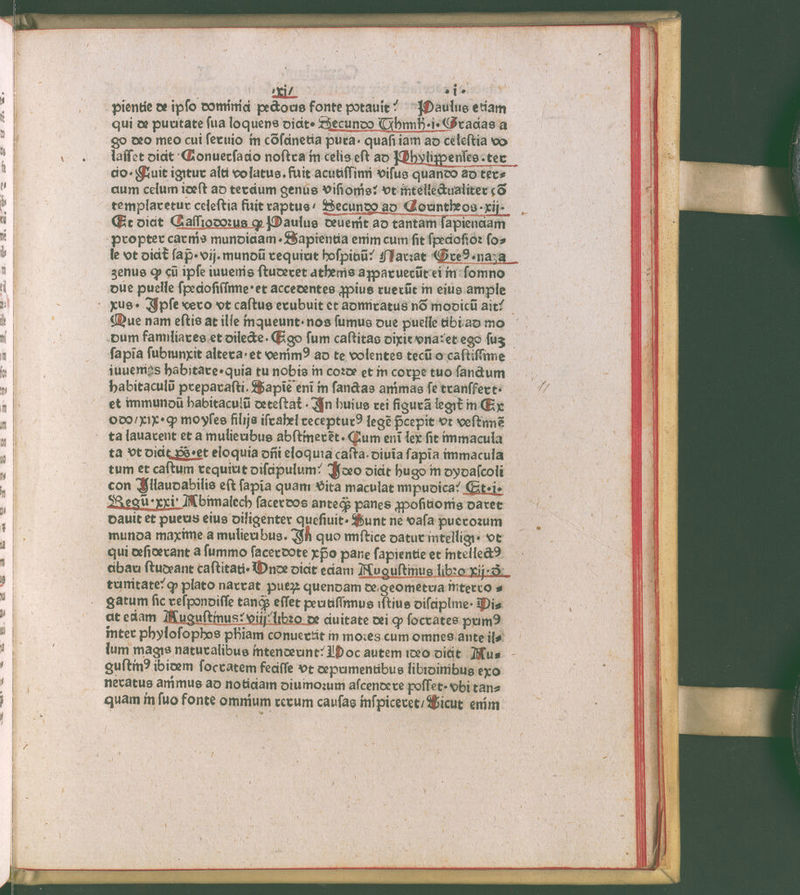 ·xi/ ·i·
pientie de ipso dominici pectoris fonte potauit? Paulus etiam
qui de puritate sua loquens dicit· Secundo Thimoth·i· Gracias a
go deo meo cui seruio in cōsciētia pura· quasi iam ad celestia vo
lasset dicit Conuersacio nostra in celis est ad Phylippenses·ter
cio· Fuit igitur alti volatus· fuit acutissimi visus quando ad ter⸗
cium celum idest ad tercium genus visionis? vt intellectualiter cō
templaretur celestia fuit raptus? Secundo ad Corintheos·xij·
Et dicit Cassiodorus ꝙ Paulus deuenit ad tantam sapienciam
propter carnis mundiciam· Sapientia enim cum sit speciosior so⸗
le vt dicit̄ sap̄·vij· mundū requirit hospitiū? Narrat Greꝰ·naza
zenus ꝙ cū ipse iuuenis studeret athenis apparuerūt ei in somno
due puelle speciosissime·et accedentes ꝓpius ruerūt in eius ample
xus· Ipse vero vt castus erubuit et admiratus nō modicū ait?
Que nam estis at ille inqueunt·nos sumus due puelle tibi ad mo
dum familiares et dilecte· Ego sum castitas dixit vna?et ego suꝫ
sapīa subiunxit altera·et venimꝰ ad te volentes tecū o castissime
iuuenis habitare·quia tu nobis in corde et in corpe tuo sanctum
habitaculū preparasti. Sapīe enī in sanctas animas se transfert·
et immundū habitaculū detestat̄· In huius rei figurā legit̄ in Ex
odo/xix·ꝙ moyses filijs israhel recepturꝰ legē p̄cepit vt vestimē
ta lauarent et a mulieribus abstinerēt· Cum enī lex sit immacula
ta vt dicit pš·et eloquia dn̄i eloquia casta·diuīa sapīa immacula
tum et castum requirit discipulum? Ideo dicit hugo in dydascoli
con Illaudabilis est sapīa quam vita maculat impudica? Et·i·
Regū·xxi· Abimalech sacerdos anteqꝫ panes ꝓpositionis daret
dauit et pueris eius diligenter quesiuit· Sunt ne vasa puerorum
munda maxime a mulieribus. In quo mistice datur intelligi· vt
qui desiderant a summo sacerdote xp̄o pane sapientie et intellectꝰ
cibari studeant castitati· Vnde dicit eciam Augustinus libro xij·d̄
trinitate?ꝙ plato narrat pueꝝ quendam de geometria interro⸗
gatum sic respondisse tanqꝫ esset peritissimus istius discipline· Di⸗
cit eciam Augustinus? viij·libro de ciuitate dei ꝙ socrates primꝰ
inter phylosophos phīam conuertit in mores cum omnes ante il⸗
lum magis naturalibus intenderunt? Hoc autem ideo dicit Au⸗
gustinꝰ ibidem socratem fecisse vt deprimentibus libidinibus exo
neratus animus ad noticiam diuinorum ascendere posset·vbi tan⸗
quam in suo fonte omnium rerum causas inspiceret/ Sicut enim